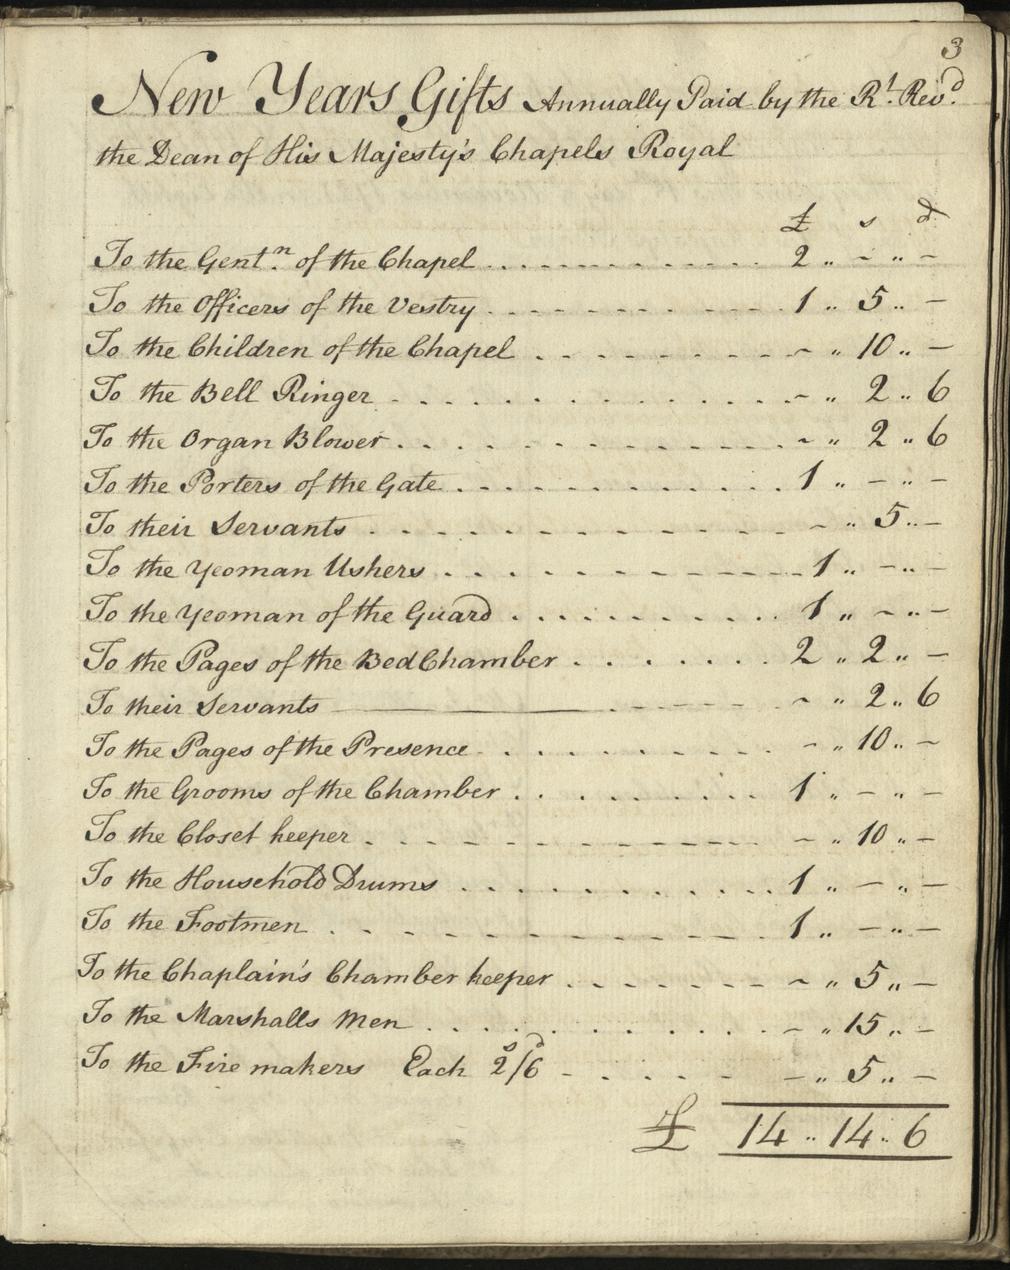 3
New Years Gifts Annually Paid by the Rt. Revd.
the Dean of His Majesty's Chapels Royal
£ s d
To the Gentn. of the Chapel . . . . . . . . . . . . . . 2 " - " -
To the Officers of the Vestry . . . . . . . . . . . . . . 1 " 5 " -
To the Children of the Chapel . - - - - - - - - - - " 10 " -
To the Bell Ringer - . . . . . . . . . . . . . . - " 2 " 6
To the Organ Blower . . . . . . . . . . . . . . - " 2 " 6
To the Porters of the Gate . . . . . . . . . . . . . . 1 " - " -
To their Servants . . . . . . . - - - - - - - - " 5 " -
To the Yeoman Ushers . . . . . . - - - - - - 1 " - " -
To the Yeoman of the Guard . . . . . . . . . . . 1 " - " -
To the Pages of the BedChamber . . . . . . . 2 " 2 " -
To their Servants - - - - - - - - " 2 " 6
To the Pages of the Presence . . . . . . . . . . - " 10 " -
To the Grooms of the Chamber . . . . . . . . . 1 " - " -
To the Closet keeper . - - - - - - - - - - - " 10 " -
To the Household Drums . . . . . . . . . . . . 1 " - " -
To the Footmen . . - - - - - - - - - - - 1 " - " -
To the Chaplain's Chamber keeper . . . . - - - - " 5 " -
To the Marshalls Men . . . . . . . . . . . . - " 15 " -
To the Fire makers Each 2s/6d - . . . . - - " 5 " -
£ 14 " 14 " 6